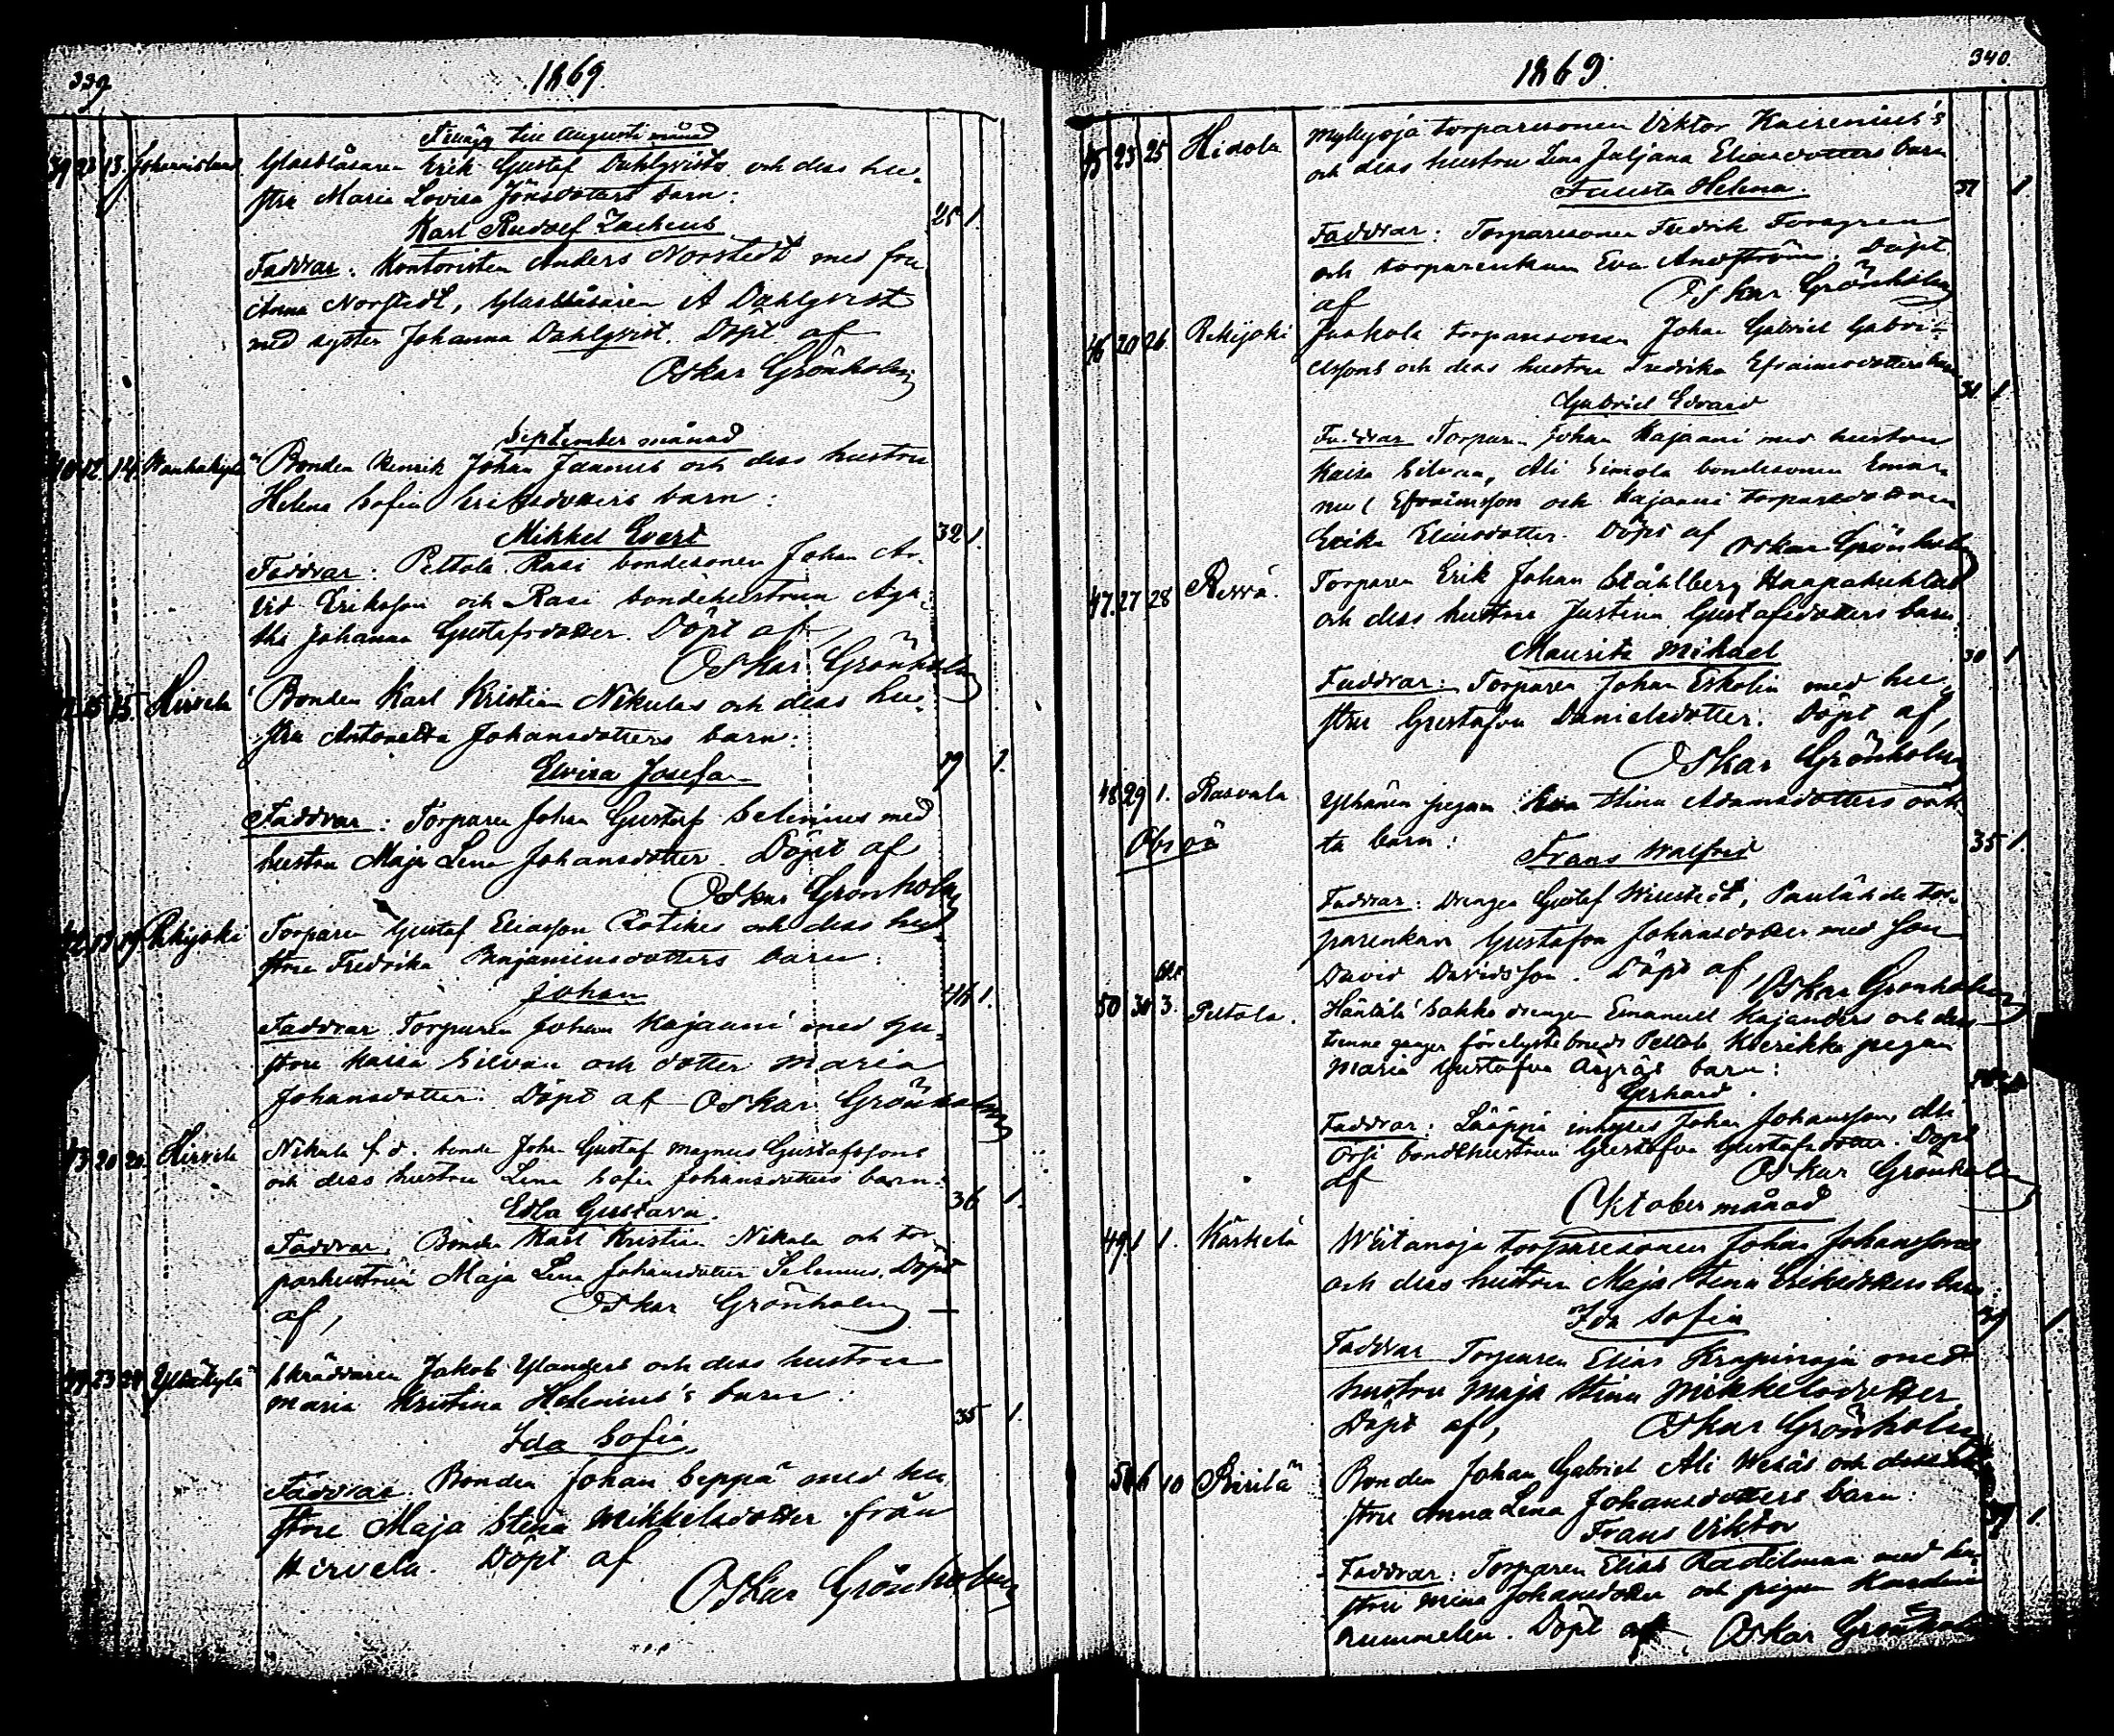 339
1869.
Tillägg till Augusti månad
39 23 13. Johannislund Glasblåsaren Erik Gustaf Dahlqvists och dess hu-
stru Maria Lovisa Jönsdotters barn:
Karl Rudolf Zacheus 25 1.
Faddrar: Kontoristen Anders Norstedt med fru
Anna Norstedt, Glasblåsaren A Dahlqvist
med syster Johanna Dahlqvist. Döpt af
Oskar Grönholm
September månad
40 12. 14. Wanhakylä Bonden Henrik Johan Jaannus och dess hustru
Helena Sofia Eriksdotters barn:
Mikkel Evert 32 1.
Faddrar: Peltola Rasi bondesonen Johan Ar-
vid Eriksson och Rasi bondehustrun Aga-
tha Johanna Gustafsdotter. Döpt af,
Oskar Grönholm
15 15. Hirvelä Bonden Karl Kristian Nikulas och dess hu-
stru Antonetta Johansdotters barn:
Elvira Josefa 19 1.
Faddrar: Torparen Johan Gustaf Selenius med
hustru Maja Lena Johansdotter. Döpt af
Oskar Grönholm
42 17 19 Rekijoki Torparen Gustaf Eliasson Rotikes och dess hu-
stru Fredrika Benjaminsdotters barn:
Johan 46 1.
Faddrar Torparen Johan Kajaani med hu-
stru Kaisa Silvan och dotter Maria
Johansdotter. Döpt af Oskar Grönholm
43 20 20. Hirvelä Nikula f.d. bonde Johan Gustaf Magnus Gustafssons
och dess hustru Lena Sofia Johansdotters barn:
Edla Gustava. 36 1.
Faddrar. Bonden Karl Kristian Nikula och tor-
parhustrun Maja Lena Johansdotter Selenius. Döpt
af, Oskar Grönholm
44 23 24 Ylikylä Skräddaren Jakob Ylanders och dess hustru
Maria Kristina Helenius's barn:
Ida Sofia 35 1.
Faddrar. Bonden Johan Seppä med hu-
stru Maja Stina Mikkelsdotter från
Hirvelä. Döpt af
Oskar Grönholm
340.
1869.
45 23 25 Hidola Myllyoja torparesonen Viktor Kairenius's
och dess hustru Lena Juljana Eliasdotters barn
Fausta Helena. 37 1.
Faddrar: Torparesonen Fredrik Forsgren
och torparenkan Eva Andström. Döpt
af Oskar Grönholm
46 20 26. Rekijoki Juhola torparesonen Johan Gabriel Gabri-
elssons och dess hustru Fredrika Efraimsdotters barn
Gabriel Edvard 31. 1.
Faddrar Torparen Johan Kajaani med hustru
Kaisa Silvan, Ali Simola bondesonen Ema-
nuel Efraimsson och Kajaani torparedottren
Erika Eliasdotter. Döpt af Oskar Grönholm
47. 27 28 Torparen Erik Johan Ståhlberg Haapasuhlas
och dess hustru Justina Gustafsdotters barn
Maurits Mikael 30 1
Faddrar: Torparen Johan Eskolin med hu-
stru Gustafva Danielsdotter. Döpt af,
Oskar Grönholm
48 29 1. Rasvala Ylhänen pigan Eva Stina Adamsdotters oäk-
Obs oä ta barn:
Frans Walfrid 35 1.
Faddrar: Drengen Gustaf Winstedt, tor-
parenkan Gustafva Johansdotter med son
David Davidsson. Döpt af Oskar Grönholm
50 30 3. Peltola. Häntälä Sakko drengen Emanuel Kajanders och dess
tvenne gånger förelysta bruds Peltola Kverikko pigan
Maria Gustafva barn:
Gerhard.
Faddrar: Lääppä inhyses Johan Johansson, Ali
Orsi bondehustrun Gustafva Gustafsdotter. Döpt
af Oskar Grönholm
Oktober månad
49. 1 1. Kärkelä Wiitanoja torparesonen Johan Johanssons
och dess hustru Maja Stina Eriksdotters barn:
Ida Sofia 1.
Faddrar Torparen Elias Krapinoja med
hustru Maja Stina Mikkelsdotter
Döpt af, Oskar Grönholm
51 6 10 Pirilä Bonden Johan Gabriel Ali Wesäs och dess hu-
stru Anna Lena Johansdotters barn:
Frans Viktor 39 1.
Faddrar: Torparen Elias Radilman med hu-
stru Mina Johansdotter och pigan
Nummelin. Döpt af, Oskar Grönholm